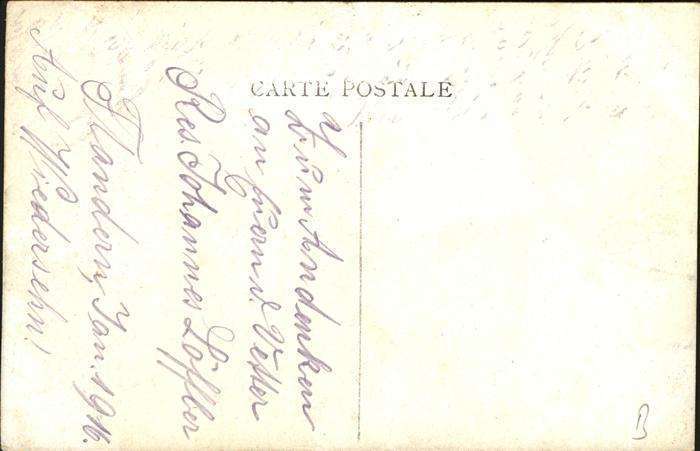 CARTE POSTALE
Zum Andenken
an Euern d. Vetter
Res. Johannes Löffler
Flandern, Jan. 1916.
Auf Wiedersehn!
B